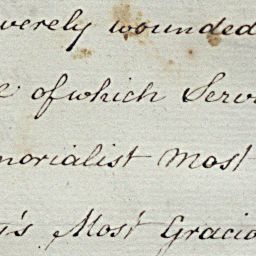 verely wounded
of which Serv
morialist Most
's Most Gracio